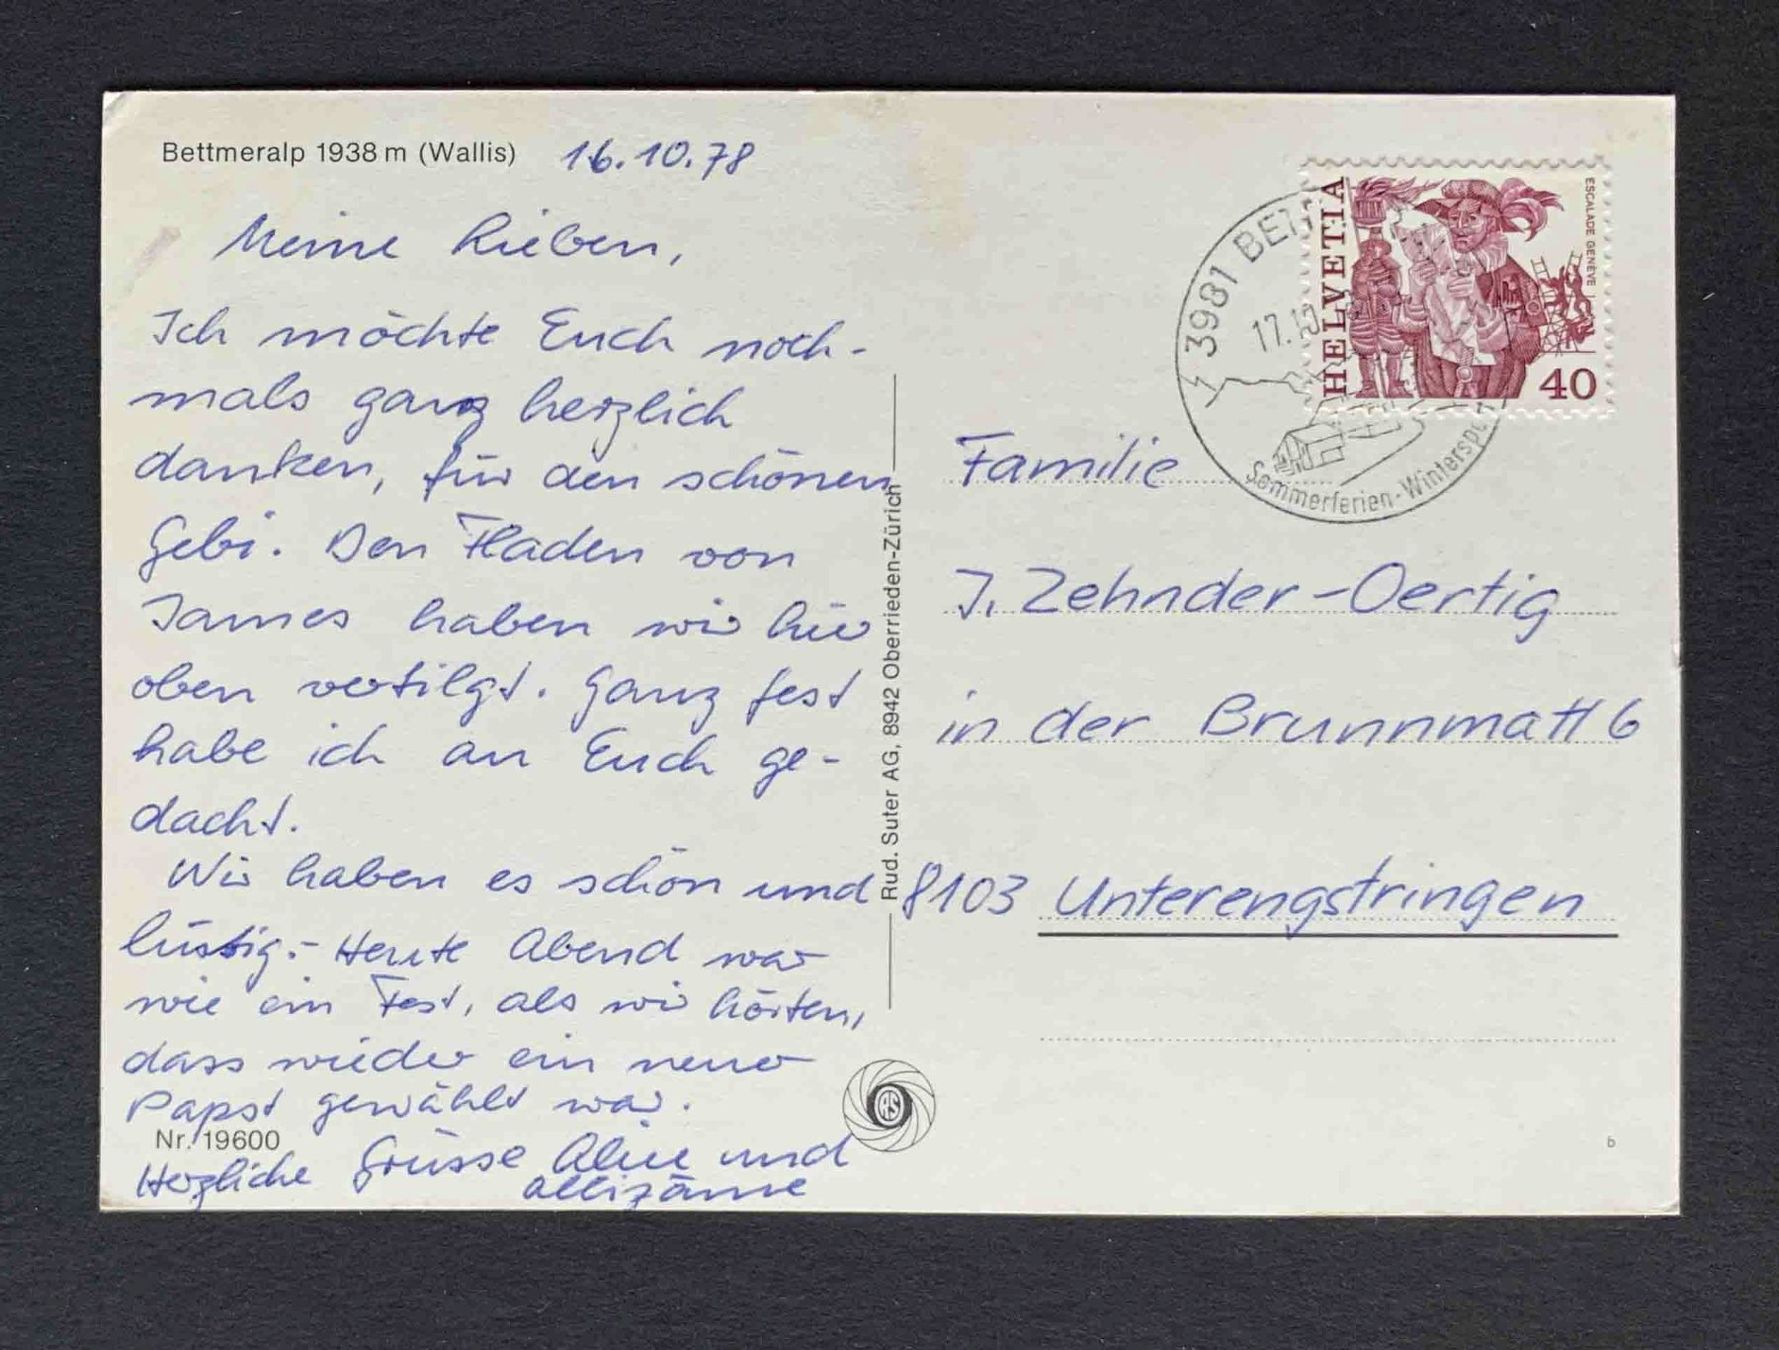 Bettmeralp 1938 m (Wallis) 16.10.78
Meine Lieben,
Ich möchte Euch noch-
mals ganz herzlich
danken, für den schönen
Gebi. Den Fladen von
James haben wir hier
oben vertilgt. Ganz fest
habe ich an Euch ge-
dacht.
Wir haben es schön und
lustig.- Heute Abend war
wie ein Fest, als wir hörten,
dass wieder ein neuer
Papst gewählt war.
Nr. 19600
Herzliche Grüsse Alice und
allizäme
Rud. Suter AG, 8942 Oberrieden-Zürich
RS
3981
17.10
Sommerferien-Winterspo
HELVETIA
ESCALADE GENÈVE
40
Familie
J. Zehnder-Oertig
in der Brunnmatt 6
8103 Unterengstringen
b